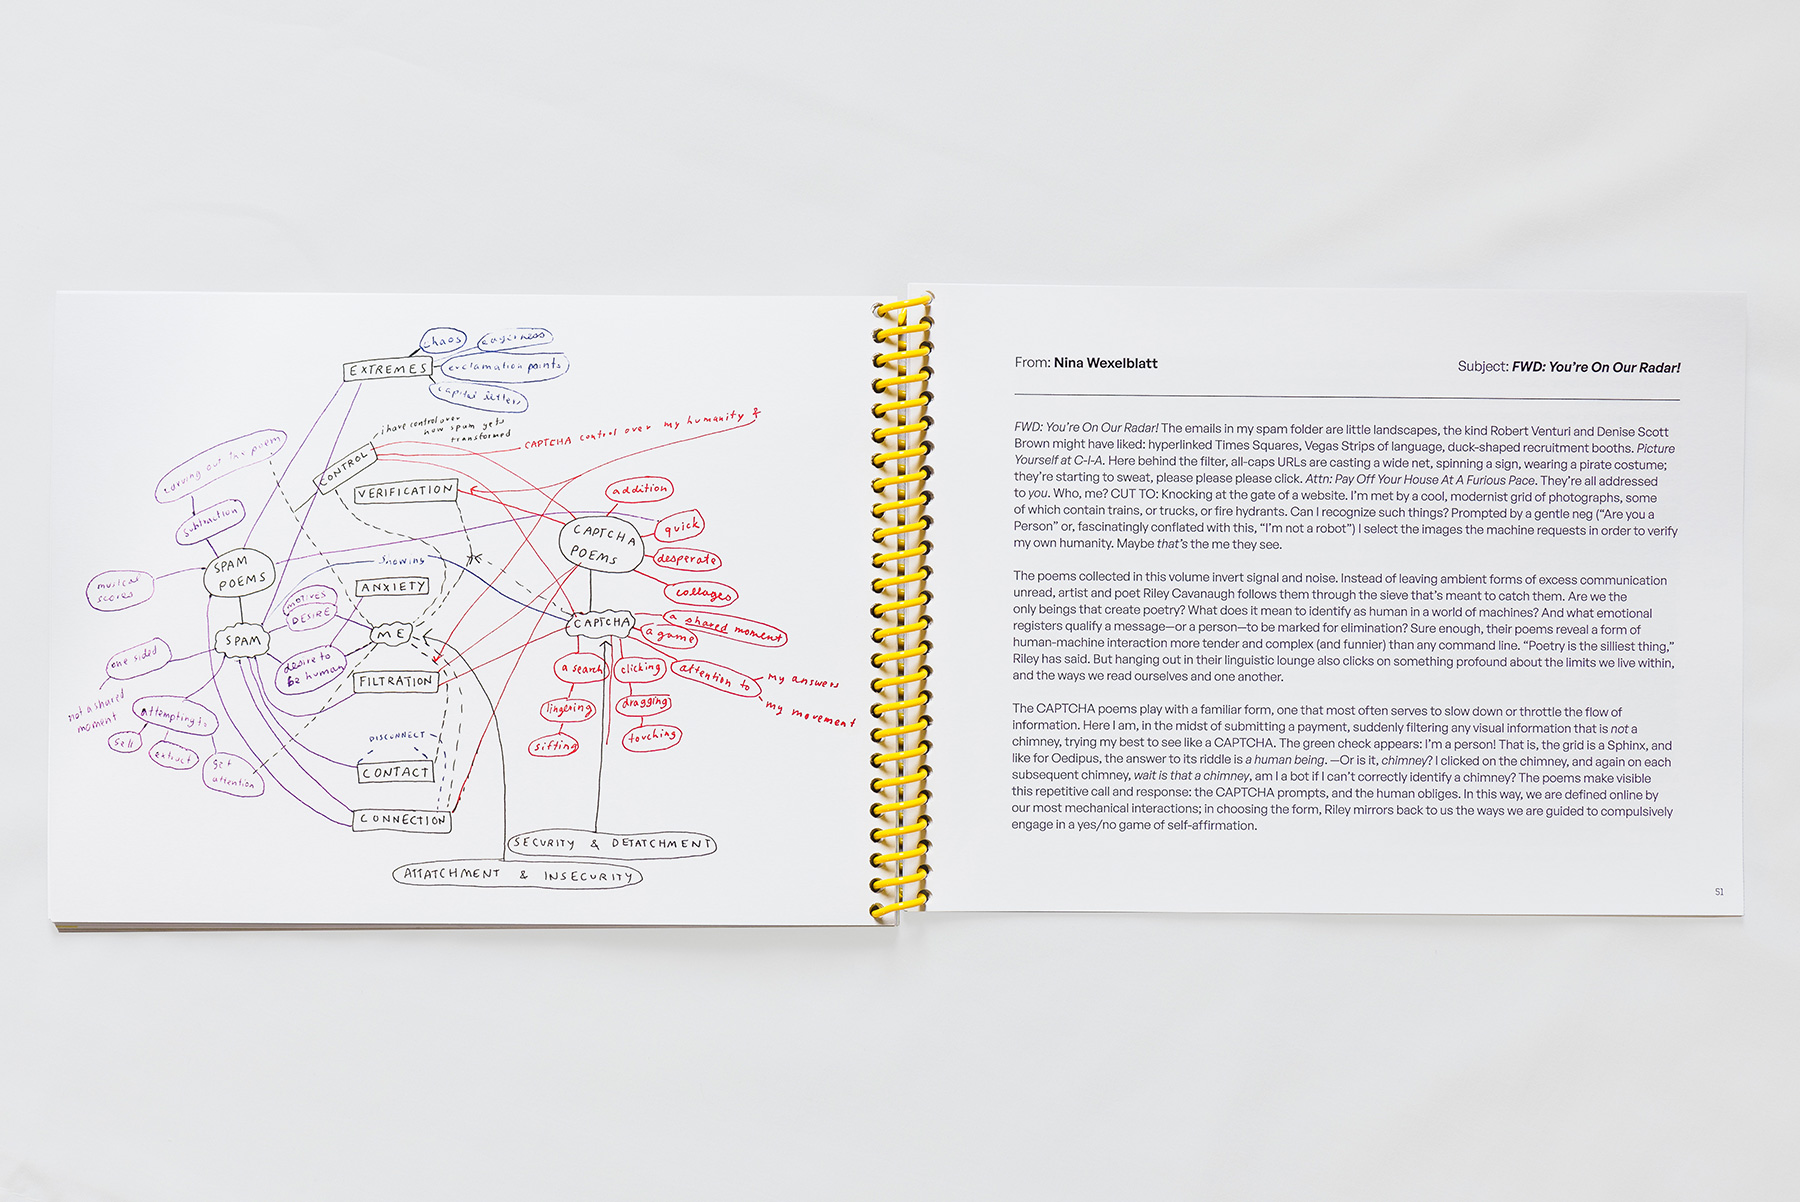 chaos
eagerness
EXTREMES
exclamation points
capital letters
i have control over
how spam gets
transformed
CAPTCHA control over my humanity &
carving out the poem
CONTROL
VERIFICATION
addition
subtraction
quick
CAPTCHA
POEMS
desperate
showing
SPAM
POEMS
musical
scores
ANXIETY
collages
motives
DESIRE
a shared moment
CAPTCHA
a game
SPAM
ME
one sided
desire to
be human
a search
clicking
attention to
my answers
my movement
FILTRATION
not a shared
moment
attempting to
lingering
dragging
sell
extract
get
attention
sifting
touching
DISCONNECT
CONTACT
CONNECTION
SECURITY & DETATCHMENT
ATTATCHMENT & INSECURITY
From: Nina Wexelblatt
Subject: FWD: You're On Our Radar!
FWD: You're On Our Radar! The emails in my spam folder are little landscapes, the kind Robert Venturi and Denise Scott
Brown might have liked: hyperlinked Times Squares, Vegas Strips of language, duck-shaped recruitment booths. Picture
Yourself at C-I-A. Here behind the filter, all-caps URLs are casting a wide net, spinning a sign, wearing a pirate costume;
they're starting to sweat, please please please click. Attn: Pay Off Your House At A Furious Pace. They're all addressed
to you. Who, me? CUT TO: Knocking at the gate of a website. I'm met by a cool, modernist grid of photographs, some
of which contain trains, or trucks, or fire hydrants. Can I recognize such things? Prompted by a gentle neg ("Are you a
Person" or, fascinatingly conflated with this, "I'm not a robot") I select the images the machine requests in order to verify
my own humanity. Maybe that's the me they see.
The poems collected in this volume invert signal and noise. Instead of leaving ambient forms of excess communication
unread, artist and poet Riley Cavanaugh follows them through the sieve that's meant to catch them. Are we the
only beings that create poetry? What does it mean to identify as human in a world of machines? And what emotional
registers qualify a message—or a person—to be marked for elimination? Sure enough, their poems reveal a form of
human-machine interaction more tender and complex (and funnier) than any command line. "Poetry is the silliest thing,"
Riley has said. But hanging out in their linguistic lounge also clicks on something profound about the limits we live within,
and the ways we read ourselves and one another.
The CAPTCHA poems play with a familiar form, one that most often serves to slow down or throttle the flow of
information. Here I am, in the midst of submitting a payment, suddenly filtering any visual information that is not a
chimney, trying my best to see like a CAPTCHA. The green check appears: I'm a person! That is, the grid is a Sphinx, and
like for Oedipus, the answer to its riddle is a human being. —Or is it, chimney? I clicked on the chimney, and again on each
subsequent chimney, wait is that a chimney, am I a bot if I can't correctly identify a chimney? The poems make visible
this repetitive call and response: the CAPTCHA prompts, and the human obliges. In this way, we are defined online by
our most mechanical interactions; in choosing the form, Riley mirrors back to us the ways we are guided to compulsively
engage in a yes/no game of self-affirmation.
51